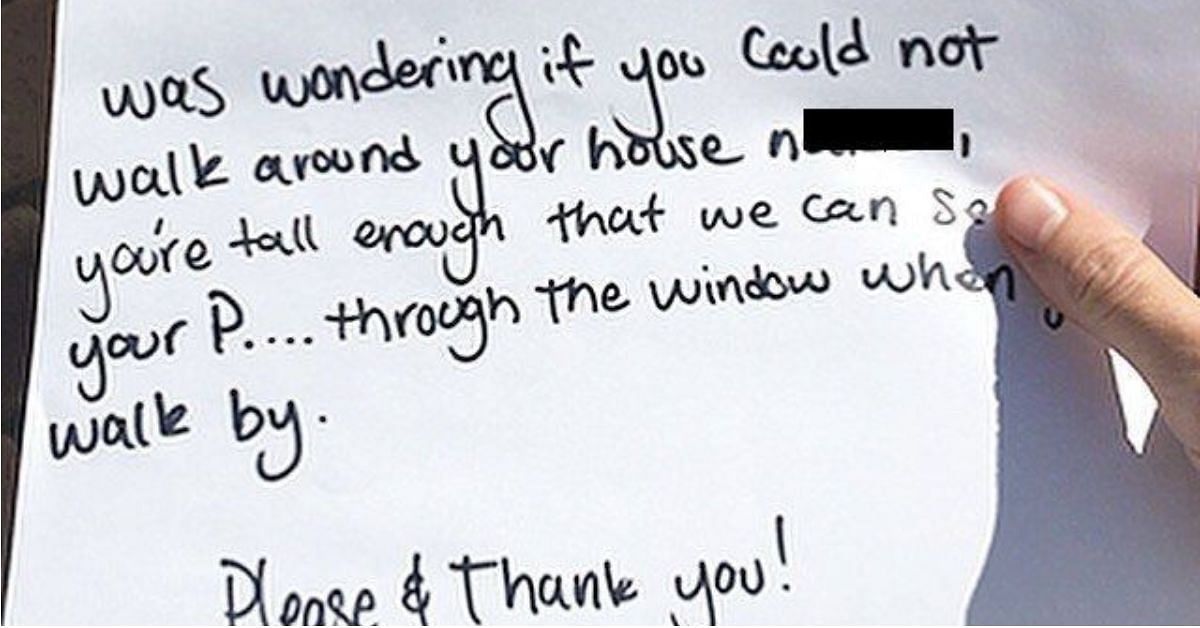 was wondering if you could not
walk around your house n
you're tall enough that we can se
your P.... through the window when
walk by.
Please & Thank you!